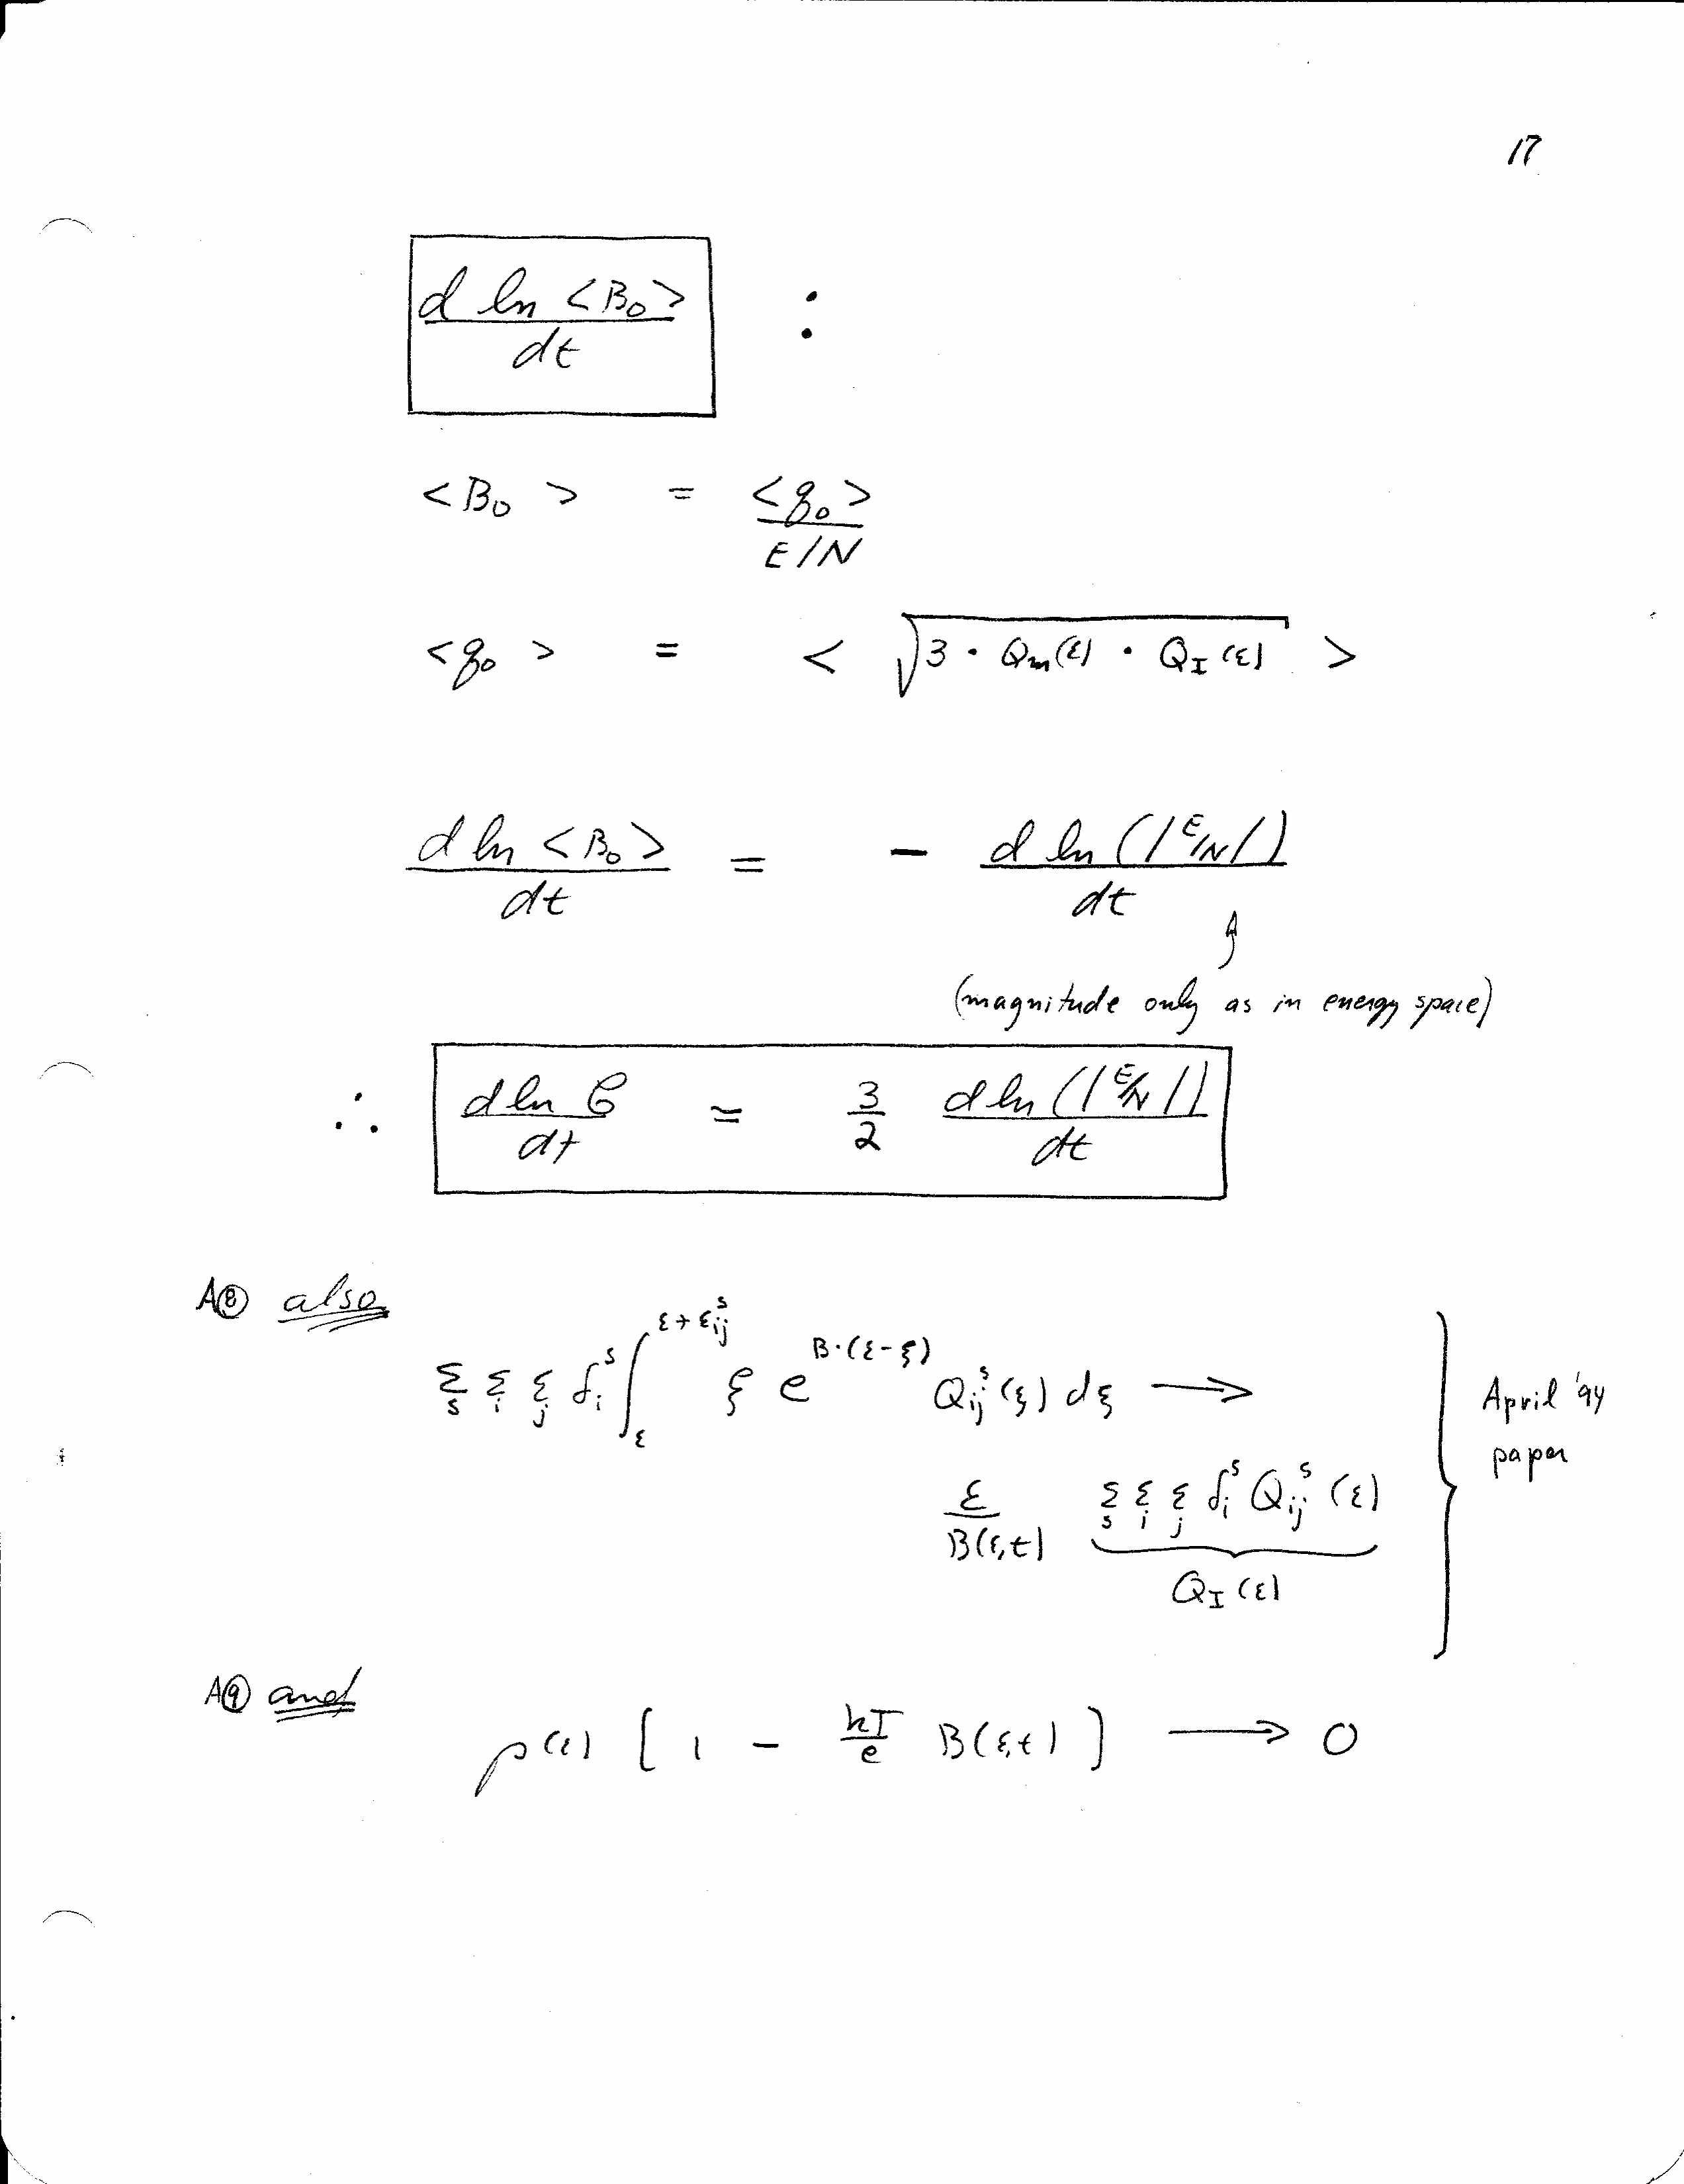 17
d ln <B₀> / dt :
<B₀> = <q₀> / E/N
<q₀> = < √(3 · Qm(ε) · Q_I(ε)) >
d ln <B₀> / dt = − d ln (|E/N|) / dt
(magnitude only as in energy space)
∴ d ln C / dt ≈ 3/2 d ln (|E/N|) / dt
A⑧ also
Σ_s Σ_i Σ_j δ_i^s ∫_ε^{ε+ε_ij^s} ξ e^{B·(ε−ξ)} Q_ij^s(ξ) dξ ⟶
ε / B(ε,t) Σ_s Σ_i Σ_j δ_i^s Q_ij^s (ε)
Q_I (ε)
April '94
paper
A⑨ and
ρ(ε) [ 1 − kT/e B(ε,t) ] ⟶ 0